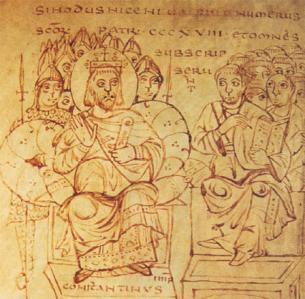 SINODUS NICENI UBI NUMERUS
SCORŪ PATRŪ CCCXVIII ET OMNES
SUBSCRIP
SERU
NT
IMP
CONSTANTINUS